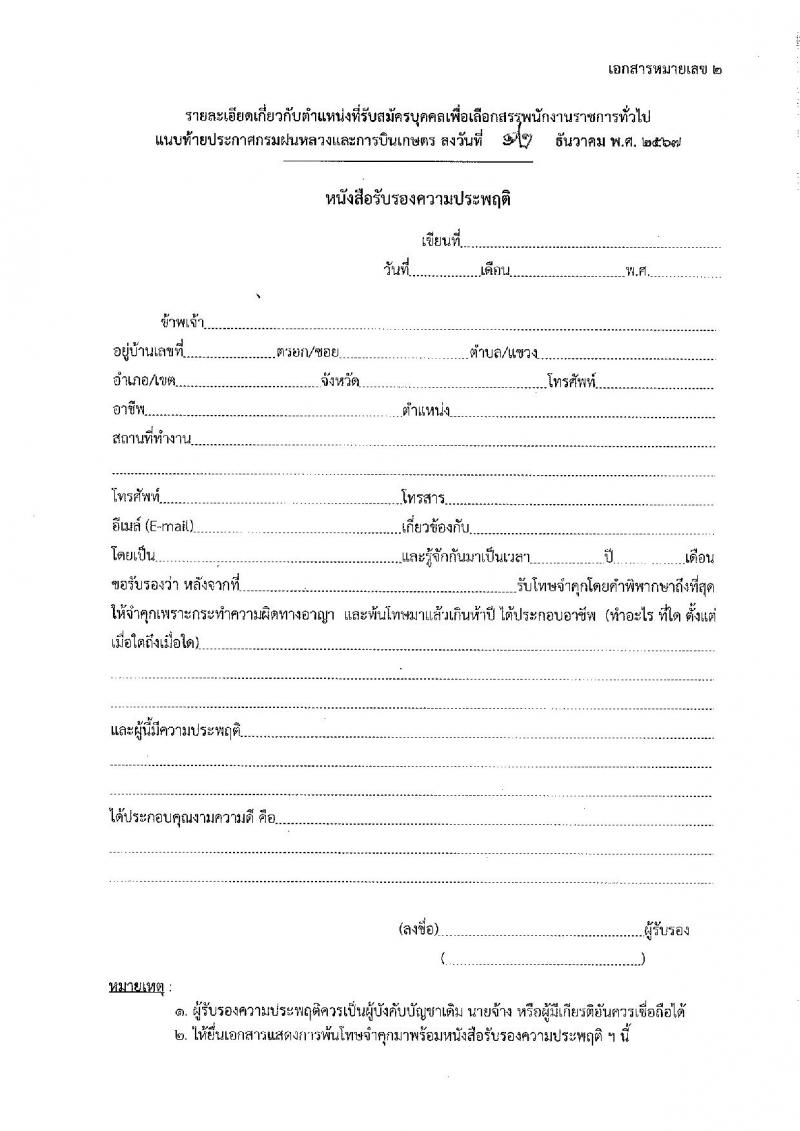 เอกสารหมายเลข ๒
รายละเอียดเกี่ยวกับตำแหน่งที่รับสมัครบุคคลเพื่อเลือกสรรพนักงานราชการทั่วไป
แนบท้ายประกาศกรมฝนหลวงและการบินเกษตร ลงวันที่ ธันวาคม พ.ศ. ๒๕๖๗
หนังสือรับรองความประพฤติ
เขียนที่
วันที่ เดือน พ.ศ.
ข้าพเจ้า
อยู่บ้านเลขที่ ตรอก/ซอย ตำบล/แขวง
อำเภอ/เขต จังหวัด โทรศัพท์
อาชีพ ตำแหน่ง
สถานที่ทำงาน
โทรศัพท์ โทรสาร
อีเมล์ (E-mail) เกี่ยวข้องกับ
โดยเป็น และรู้จักกันมาเป็นเวลา ปี เดือน
ขอรับรองว่า หลังจากที่ รับโทษจำคุกโดยคำพิพากษาถึงที่สุด
ให้จำคุกเพราะกระทำความผิดทางอาญา และพ้นโทษมาแล้วเกินห้าปี ได้ประกอบอาชีพ (ทำอะไร ที่ใด ตั้งแต่
เมื่อใดถึงเมื่อใด)
และผู้นี้มีความประพฤติ
ได้ประกอบคุณงามความดี คือ
(ลงชื่อ) ผู้รับรอง
( )
หมายเหตุ :
๑. ผู้รับรองความประพฤติควรเป็นผู้บังคับบัญชาเดิม นายจ้าง หรือผู้มีเกียรติอันควรเชื่อถือได้
๒. ให้ยื่นเอกสารแสดงการพ้นโทษจำคุกมาพร้อมหนังสือรับรองความประพฤติ ฯ นี้